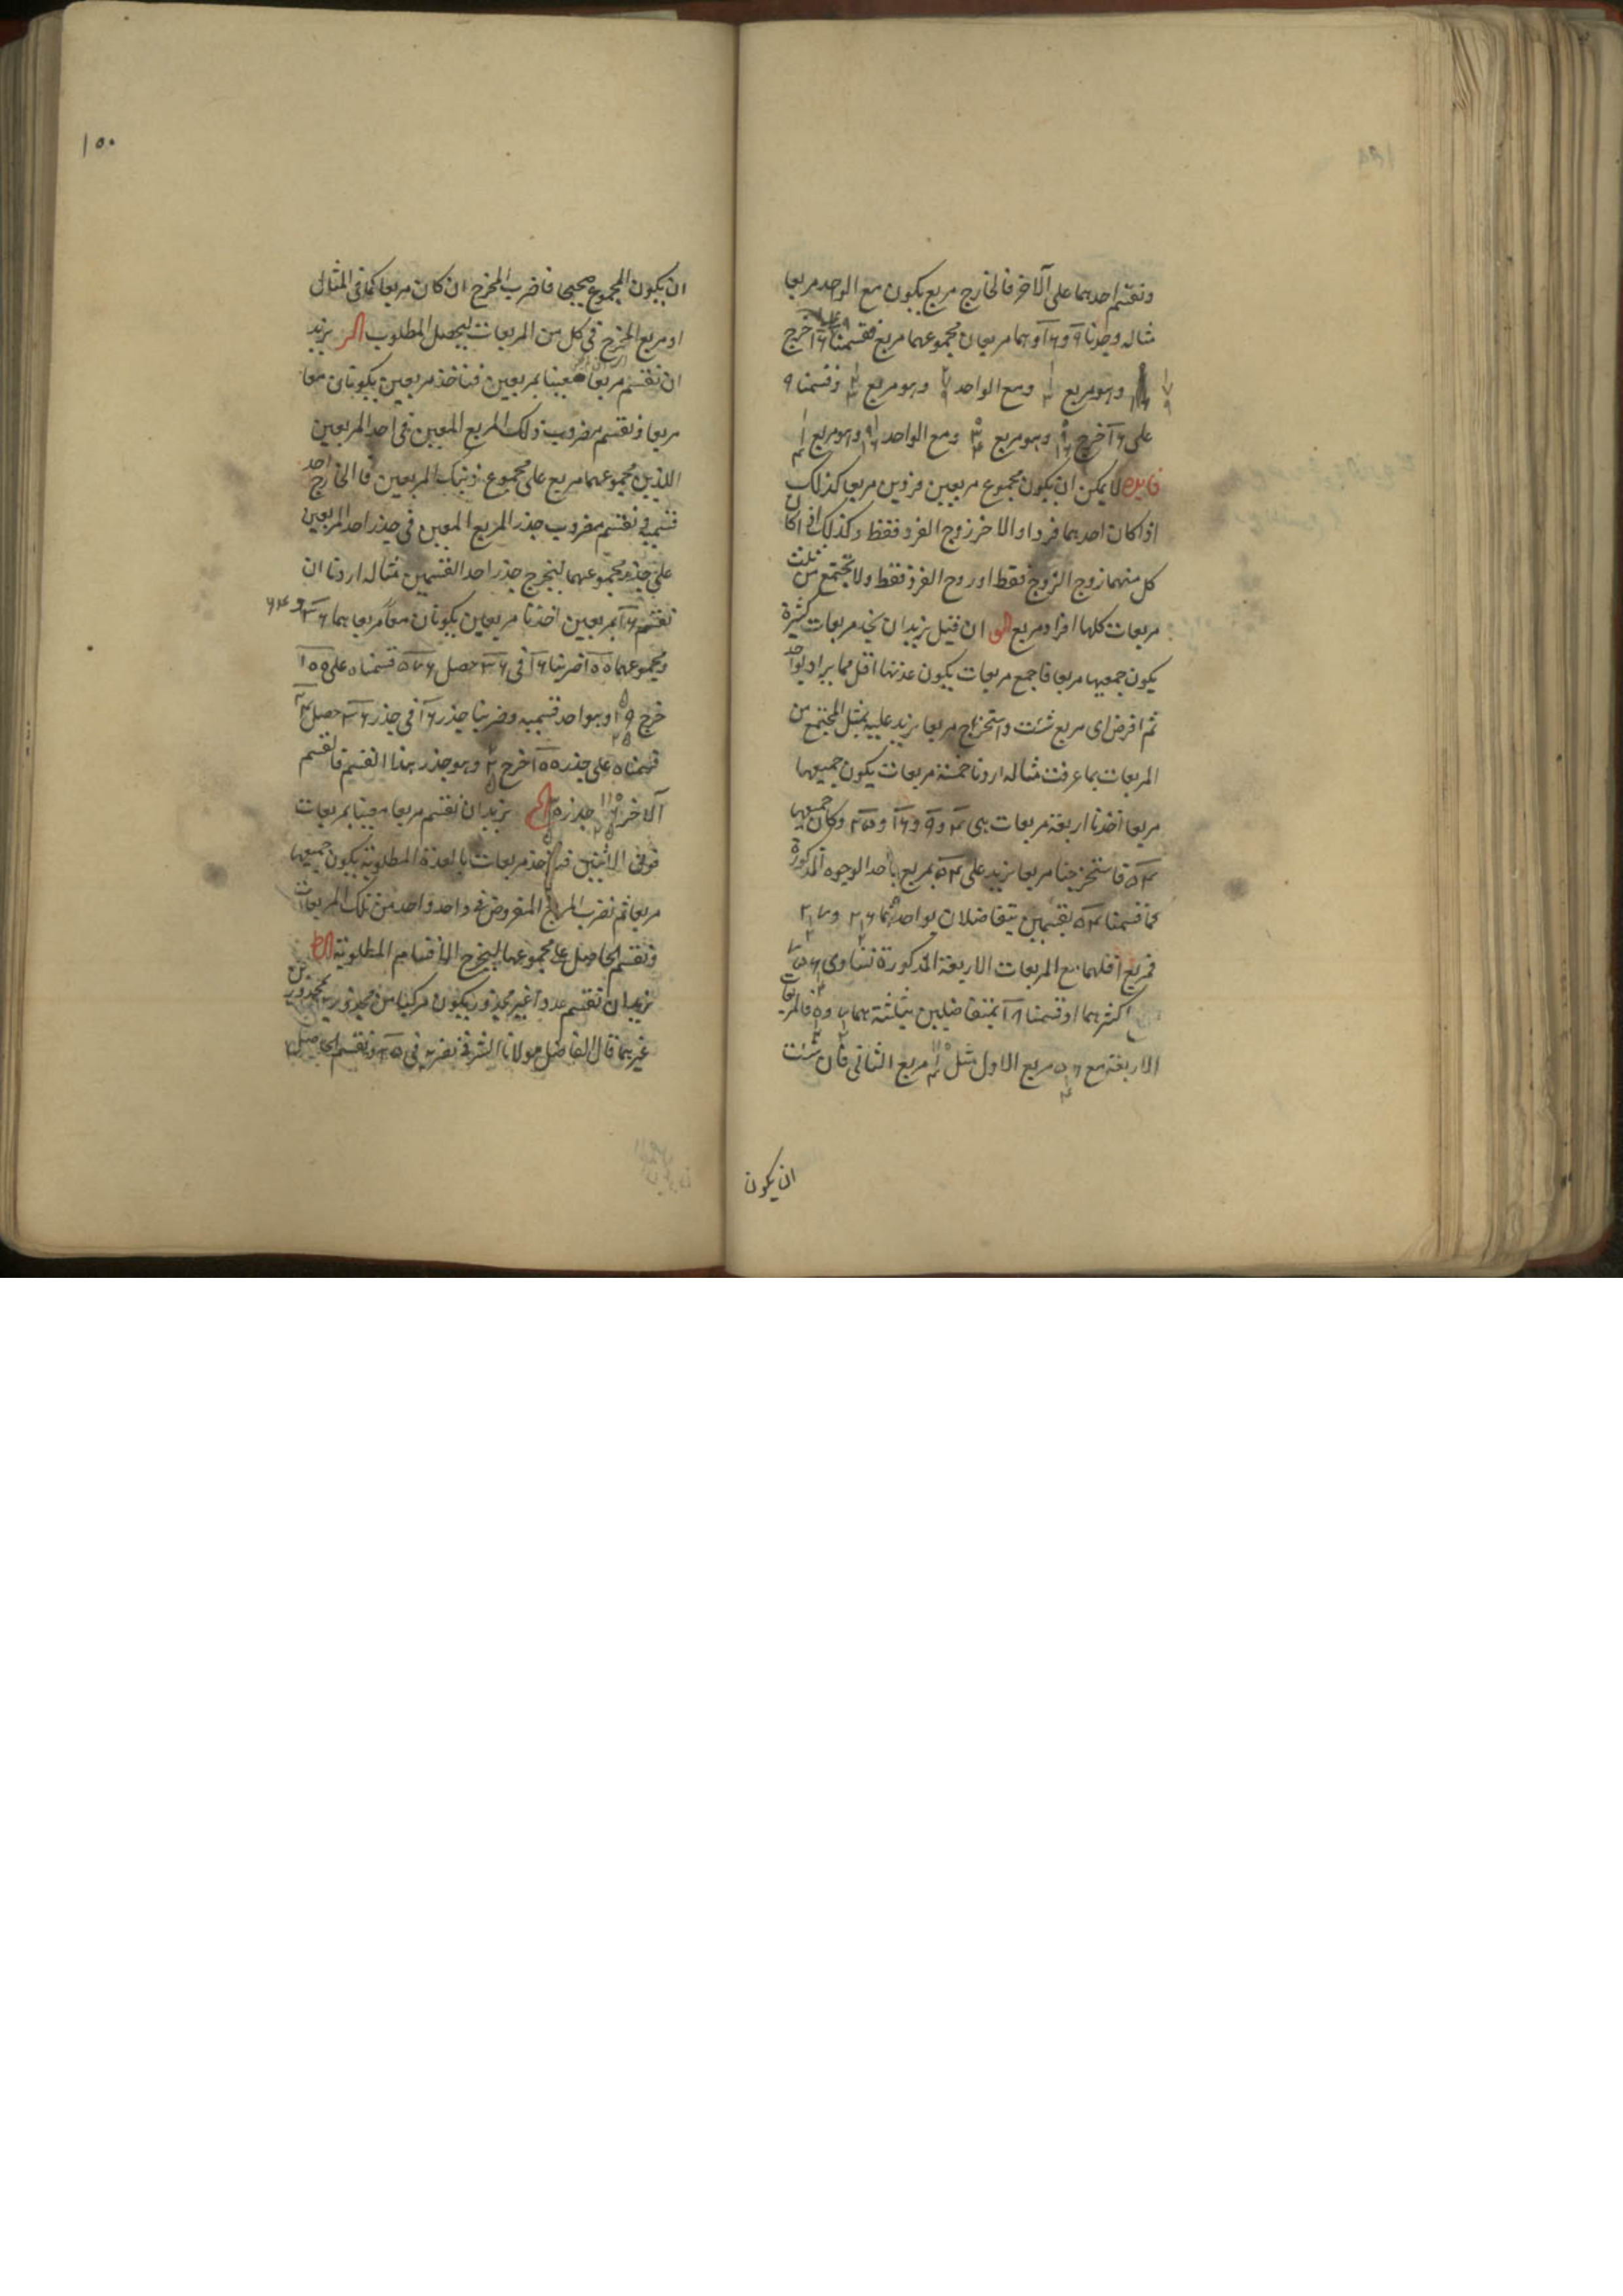 ونقسم احدهما على الآخر فالخارج مربع يكون مع الواحد مربعا
مثاله وجدنا ٩ و ١٦ وهما مربعان مجموعهما مربع فقسمنا ١٦ على ٩ خرج
١ ٧ ٩ وهو مربع ١ ١ ٣ ومع الواحد ٢ ٧ ٩ وهو مربع ١ ٢ ٣ وقسمنا ٩
على ١٦ خرج ٩ ١٦ وهو مربع ٣ ۴ ومع الواحد ١ ٩ ١٦ وهو مربع ١ ١ ۴
فايده لا يمكن ان يكون مجموع مربعين فردين مربعا كذلك
اذا كان احدهما فردا والاخر زوج الفرد فقط وكذلك اذا كان
كل منهما زوج الزوج فقط او زوج الفرد فقط ولا تجتمع من ثلث
مربعات كلها افراد مربع الو ان قيل نريد ان نجد مربعات كثيرة
يكون جميعها مربعا فاجمع مربعات يكون عدتها اقل مما يراد بواحد
ثم افرض اى مربع شئت واستخراج مربعا يزيد عليه بمثل المجتمع من
المربعات بما عرفت مثاله اردنا خمسة مربعات يكون جميعها
مربعا اخذنا اربعة مربعات هى ۴ و ٩ و ١٦ و ٢۵ وكان جميعها
۵۴ فاستخرجنا مربعا يزيد على ۵۴ بمربع باحد الوجوه المذكورة
كما قسمنا ۵۴ بقسمين يتفاضلان بواحد هما ٢٦ ١ ٢ و ٢٧ ١ ٢
فمربع اقلهما مع المربعات الاربعة المذكورة تساوى ٧۵٦ ١ ۴
اكثرهما او قسمنا ١٨ بمتفاضلين بثلثة هما ٧ ١ ٢ و فالمربعات
الاربعة مع ۵٦ ١ ۴ مربع الاول مثل ١١٠ ١ ۴ مربع الثانى فان شئت
ان يكون
١٥٠
ان يكون المجموع صحيحا فاضرب المخرج ان كان مربعا كما فى المثال
او مربع المخرج فى كل من المربعات ليحصل المطلوب الز نريد
ان نقسم مربعا معينا بمربعين فناخذ مربعين يكونان معا
مربعا ونقسم مضروب ذلك المربع المعين فى احد المربعين
اللذين مجموعهما مربع على مجموع ذينك المربعين فالخارج احد
قسميه ونقسم مضروب جذر المربع المعين فى جذر احد المربعين
على جذر مجموعهما ليخرج جذر احد القسمين مثاله اردنا ان
نقسم ١٦ بمربعين اخذنا مربعين يكونان معا مربعا هما ٣٦ و ٦۴
ومجموعهما ١٠٠ ضربنا ١٦ فى ٣٦ حصل ۵٧٦ قسمناه على ١٠٠
خرج ۵ ١٩ ٢۵ وهو احد قسميه وضربنا جذر ١٦ فى جذر ٣٦ حصل ٢۴
قسمناه على جذر ١٠٠ خرج ٢ ٢ ۵ وهو جذر هذا القسم فالقسم
الآخر ١٠ ٦ ٢۵ جذره ٣ ١ ۵ الح نريد ان نقسم مربعا معينا بمربعات
فوق الاثنين فناخذ مربعات بالعدة المطلوبة يكون جميعها
مربعا ثم نضرب المربع المفروض فى واحد واحد من تلك المربعات
ونقسم الحاصل على مجموعها ليخرج الاقسام المطلوبة الط
نريد ان نقسم عددا غير مجذور يكون مركبا من مجذورين بمجذورين
غيرهما قال الفاضل مولانا الشرف نضربه فى ٢۵ ونقسم الحاصل